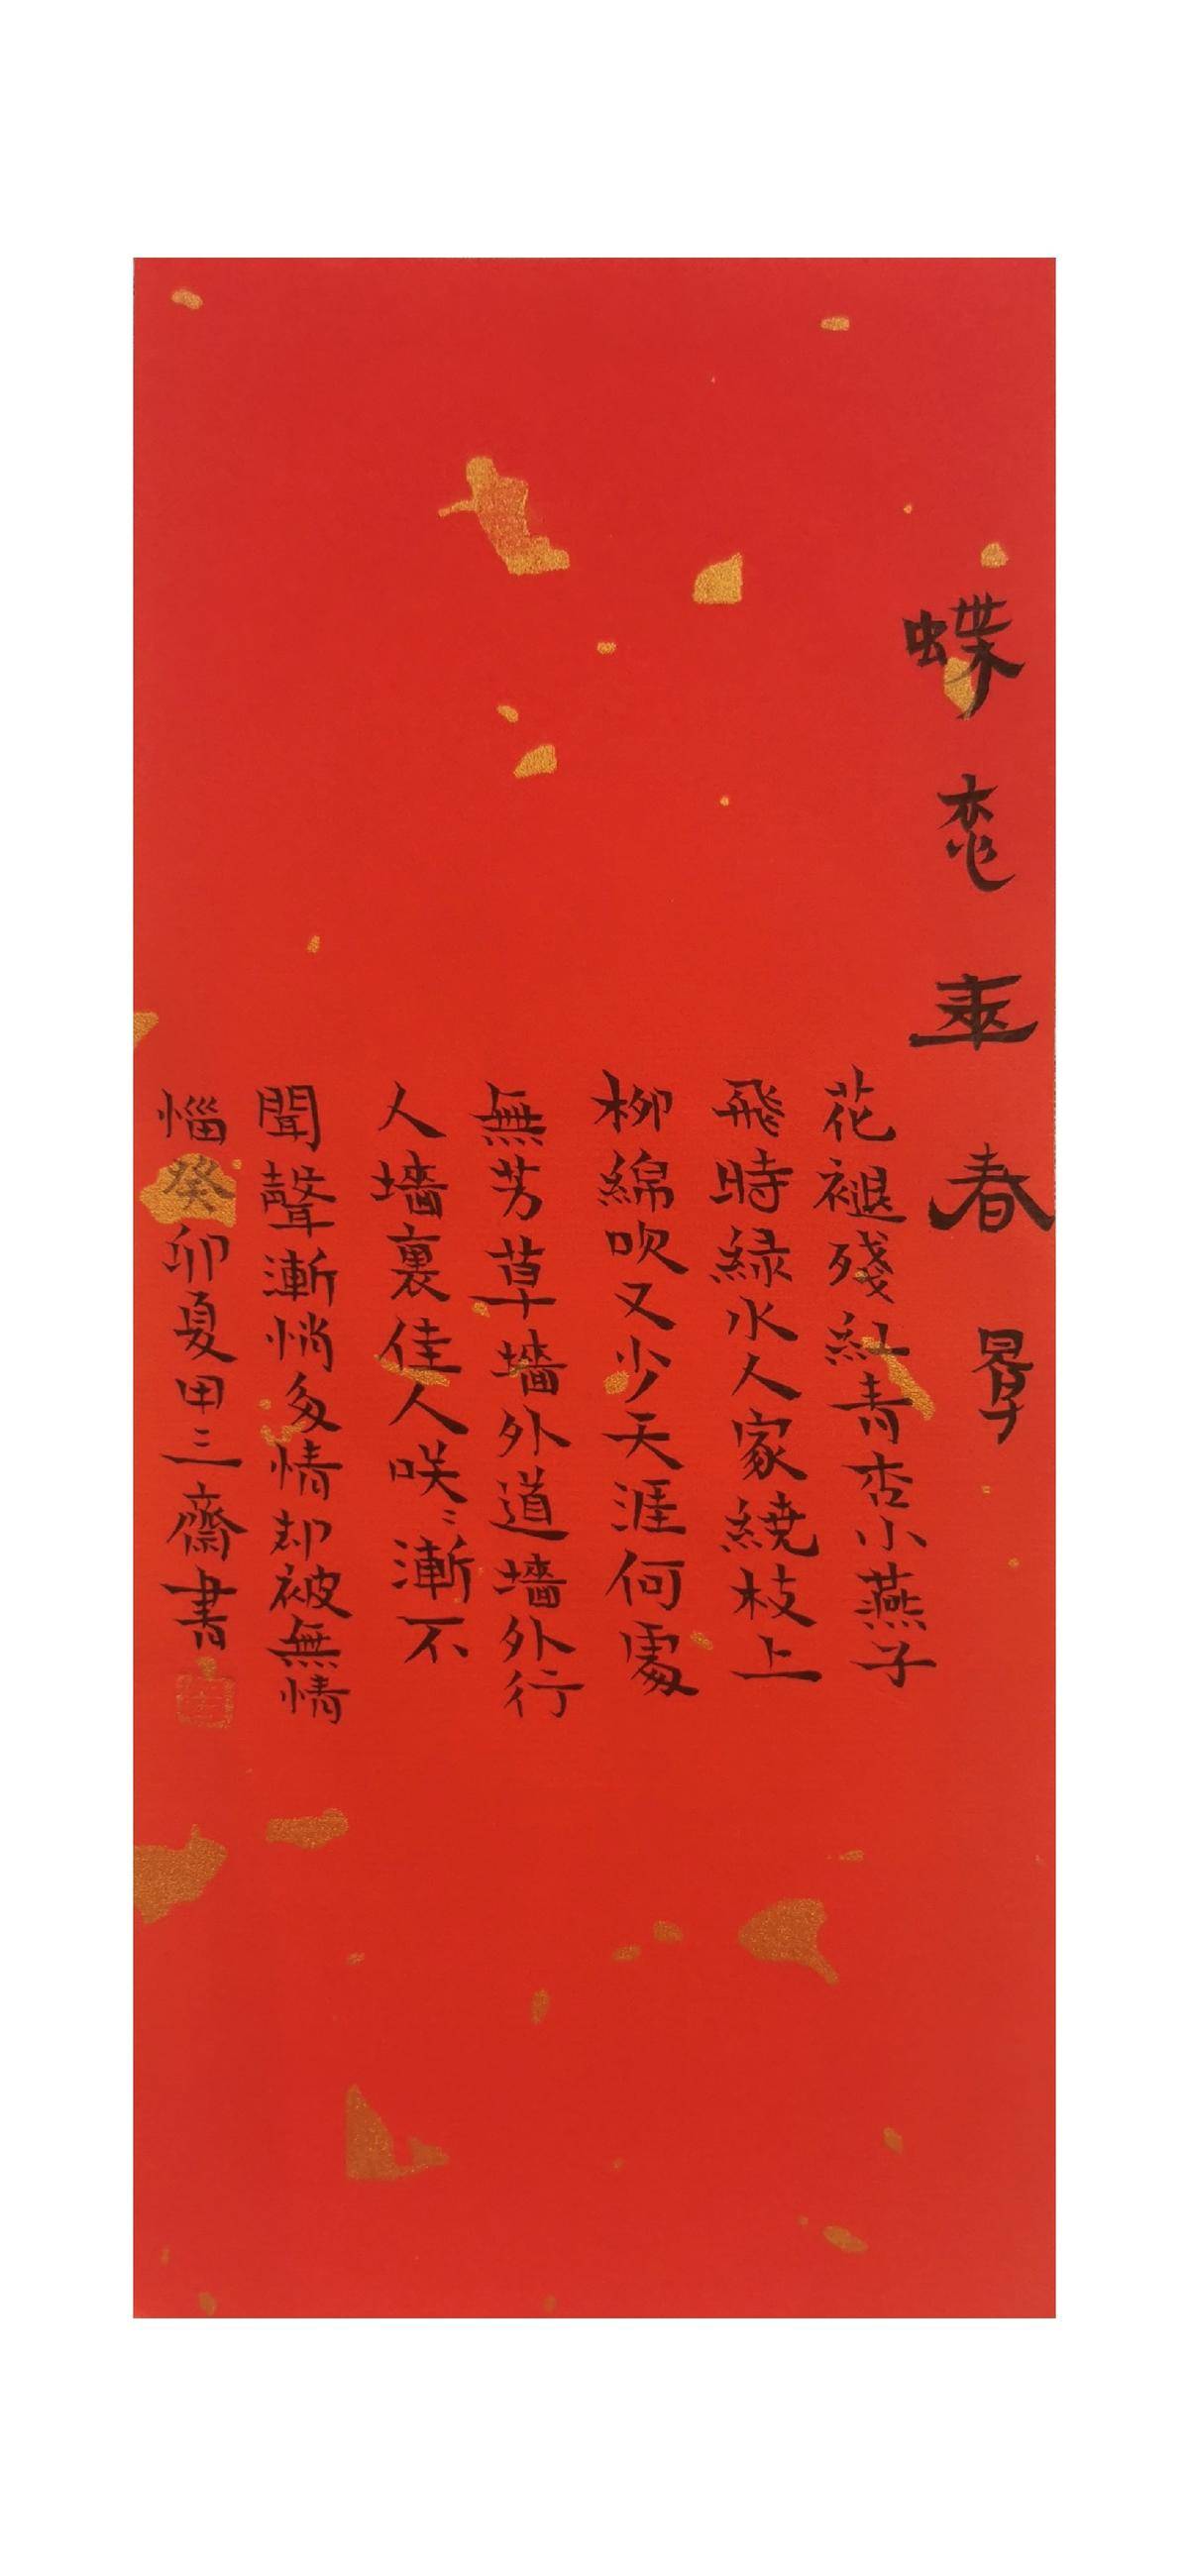 蝶恋華春景
花褪殘紅青杏小燕子
飛時緑水人家繞枝上
柳綿吹又少天涯何處
無芳草墻外道墻外行
人墻裏佳人咲〻漸不
聞聲漸悄多情却被無情
惱癸卯夏甲三齋書